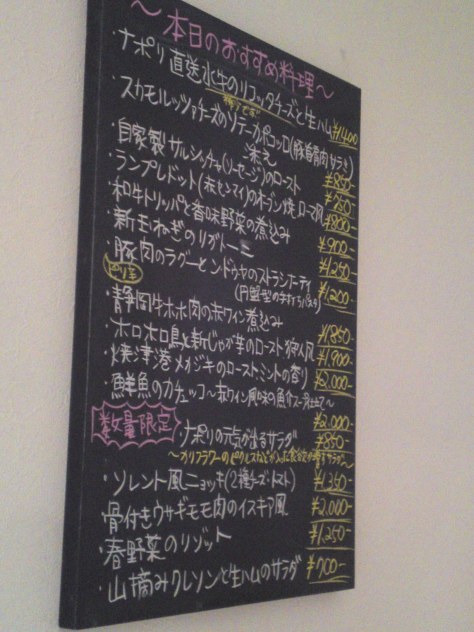 ～本日のおすすめ料理～
・ナポリ直送水牛のリコッタチーズと生ハム ¥1,400
・スカモルッツァチーズのソテーカポコッロ(豚肩肉サラミ)
添え ¥850-
・自家製サルシッチャ(ソーセージ)のロースト ¥950-
・ランプレドット(赤センマイ)のオーブン焼ローマ風 ¥800-
・和牛トリッパと香味野菜の煮込み ¥900-
・新玉ねぎのリガトーニ ¥1,250-
・豚肉のラグーとンドゥヤのストラシナーティ ¥1,200-
ピリ辛
(円盤型の手打ちパスタ)
・静岡牛ホホ肉の赤ワイン煮込み ¥1,850-
・ホロホロ鳥と新じゃが芋のロースト狩人風 ¥1,900-
・焼津港メカジキのローストミントの香り ¥2,000-
・鮮魚のカチュッコ～赤ワイン風味の魚介スープ仕立て～ ¥2,000-
数量限定
・ナポリの元気が出るサラダ ¥850-
～カリフラワーのピクルスなどが入った
・ソレント風ニョッキ(2種チーズ・トマト) ¥1,350-
・骨付きウサギモモ肉のイスキア風 ¥2,000-
・春野菜のリゾット ¥1,250-
・山摘みクレソンと生ハムのサラダ ¥700-